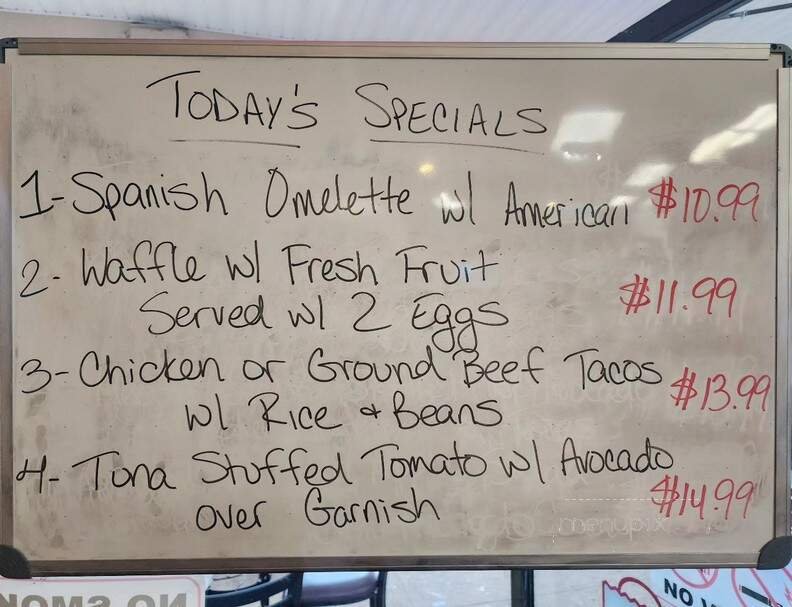 TODAY'S SPECIALS
1- Spanish Omelette w/ American $10.99
2- Waffle w/ Fresh Fruit
Served w/ 2 Eggs $11.99
3- Chicken or Ground Beef Tacos
w/ Rice & Beans $13.99
4- Tuna Stuffed Tomato w/ Avocado
over Garnish $14.99
menupix
NO SMOK
NO